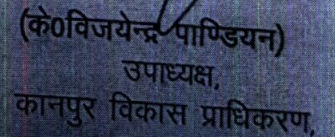 (के0विजयेन्द्र पाण्डियन)
उपाध्यक्ष,
कानपुर विकास प्राधिकरण,